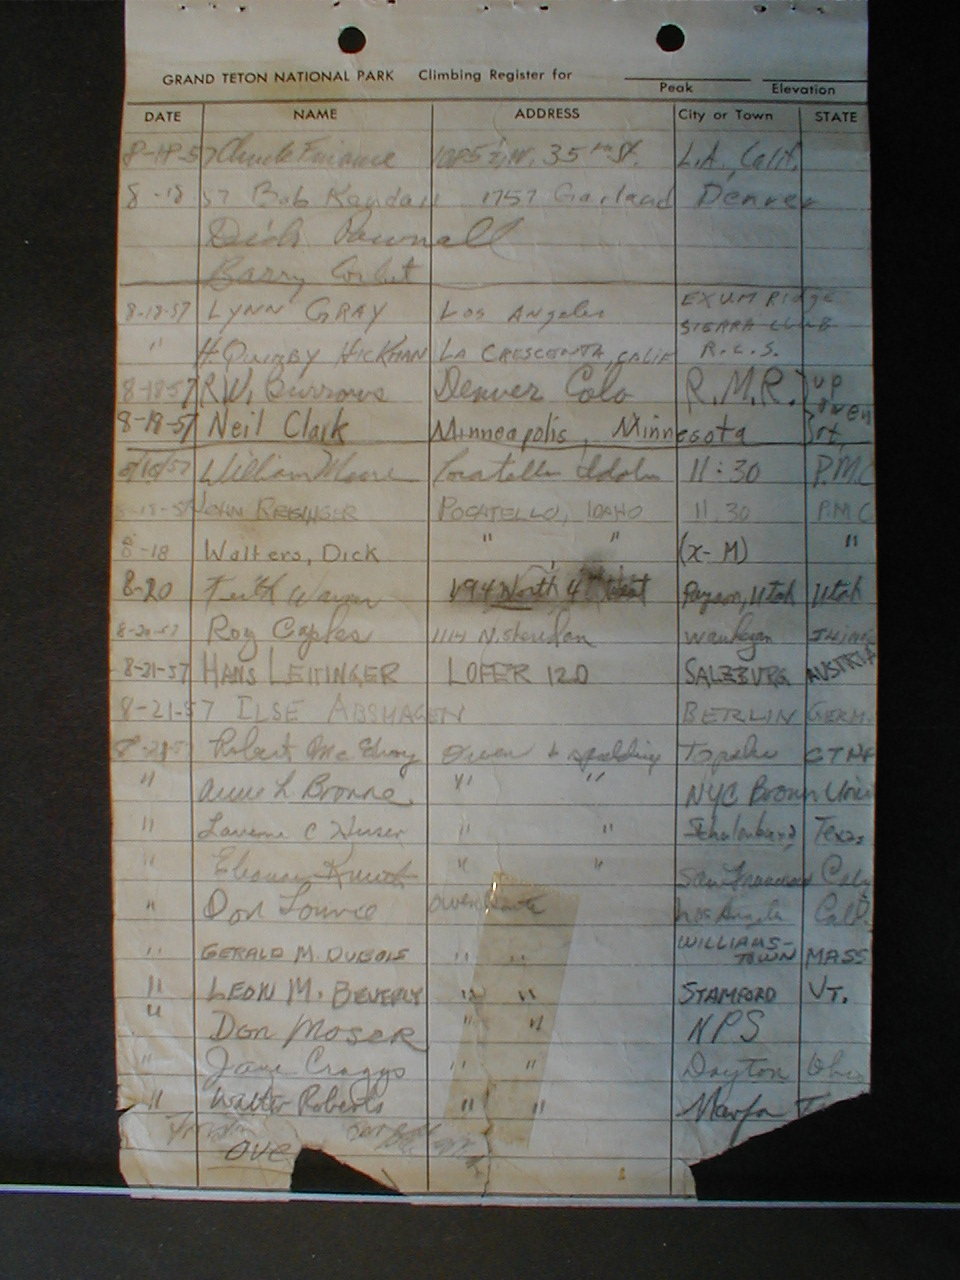 GRAND TETON NATIONAL PARK Climbing Register for
Peak Elevation
DATE NAME ADDRESS City or Town STATE
8-18-57 Chuck W. 35th St. L.A. Calif.
8-18 57 Bob Kendall 1757 Garland Denver
Dick Pownall
Barry Corbet
8-18-57 LYNN GRAY LOS Angeles EXUM Ridge
SIERRA CLUB
" H. QUIGBY HICKMAN LA CRESCENTA, CALIF R.C.S.
8-18-57 R.W. Burrows Denver Colo R.M.R. } up
8-18-57 Neil Clark Minneapolis, Minnesota } Owen rt.
8/18/57 William Moore Pocatello Idaho 11:30 P.M.C
8-18-57 JOHN POCATELLO, IDAHO 11.30 P.M.C
8-18 Walters, Dick " " (X-M) "
8-20 Keith 194 North 4th West Payson, Utah Utah
8-20-57 Roy Caples 1114 N. Sheridan Waukegan
8-21-57 HANS LEITINGER LOFER 120 SALZBURG AUSTRIA
8-21-57 ILSE ABSHAGEN BERLIN GERM.
8-21-57 Robert McElroy Owen & Spalding Topeka
" Anne L Bronne " " NYC Brown Univ
" Laverne C Heiser " " Schulenburg Texas
" Eleanor " " San Francisco Calif
" Don Owen Route Los Angeles Calif.
" GERALD M. DUBOIS " " WILLIAMS-
TOWN MASS
" LEON M. BEVERLY " " STAMFORD VT.
" Don Moser " " NPS
" Jane Craggs " " Dayton Ohio
" Walter Roberts " " Marfa T
OVE